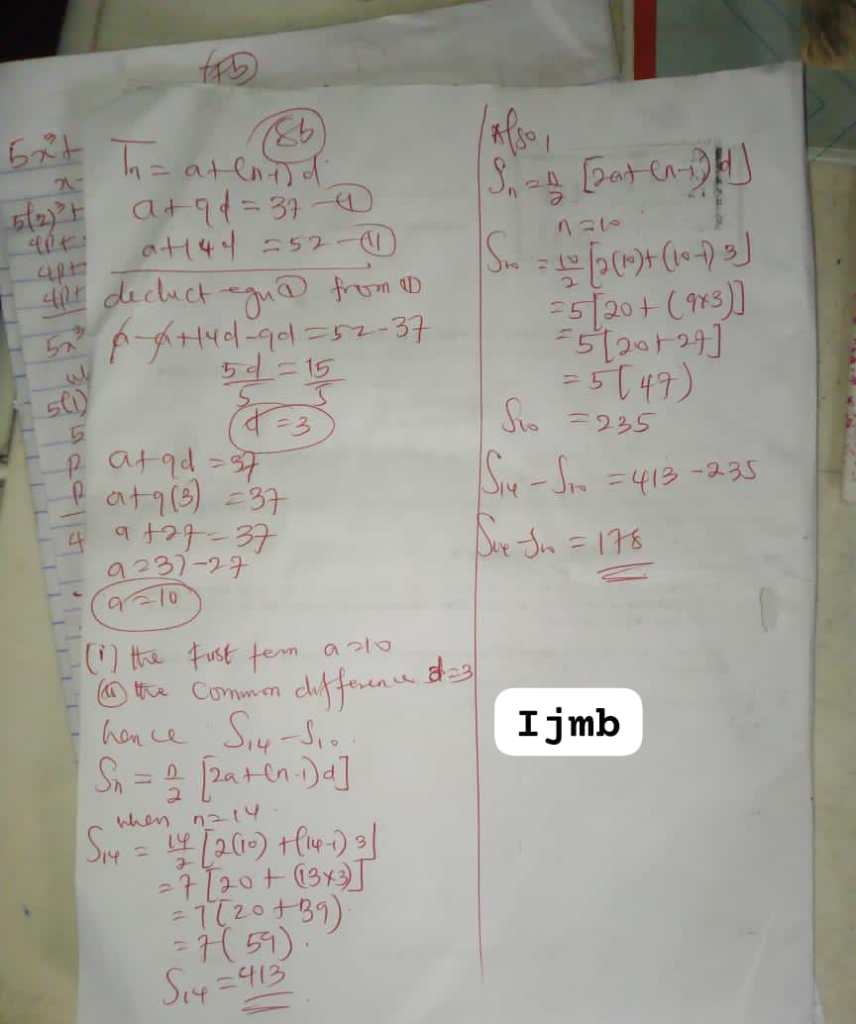 8b
Tn = a+(n-1)d
a+9d = 37 —(I)
a+14d = 52 —(II)
deduct equ (I) from (II)
a-a+14d-9d = 52-37
5d = 15
5 5
d = 3
a+9d = 37
a+9(3) = 37
a+27 = 37
a = 37-27
a = 10
(i) the first term a = 10
(ii) the common difference d=3
hence S14 - S10.
Sn = n/2 [2a+(n-1)d]
when n = 14.
S14 = 14/2 [2(10) + (14-1) 3]
= 7 [20 + (13x3)]
= 7 [20 + 39)
= 7( 59).
S14 = 413
Also,
Sn = n/2 [2a+(n-1)d]
n = 10
S10 = 10/2 [2(10)+(10-1) 3]
= 5[20 + (9x3)]
= 5[20+27]
= 5[47)
S10 = 235
S14 - S10 = 413 - 235
S14 - S10 = 178
Ijmb
5x³+
x-
5(2)³+
4p+
4p+
4p+
5x³
5(1)
5
p
p
4